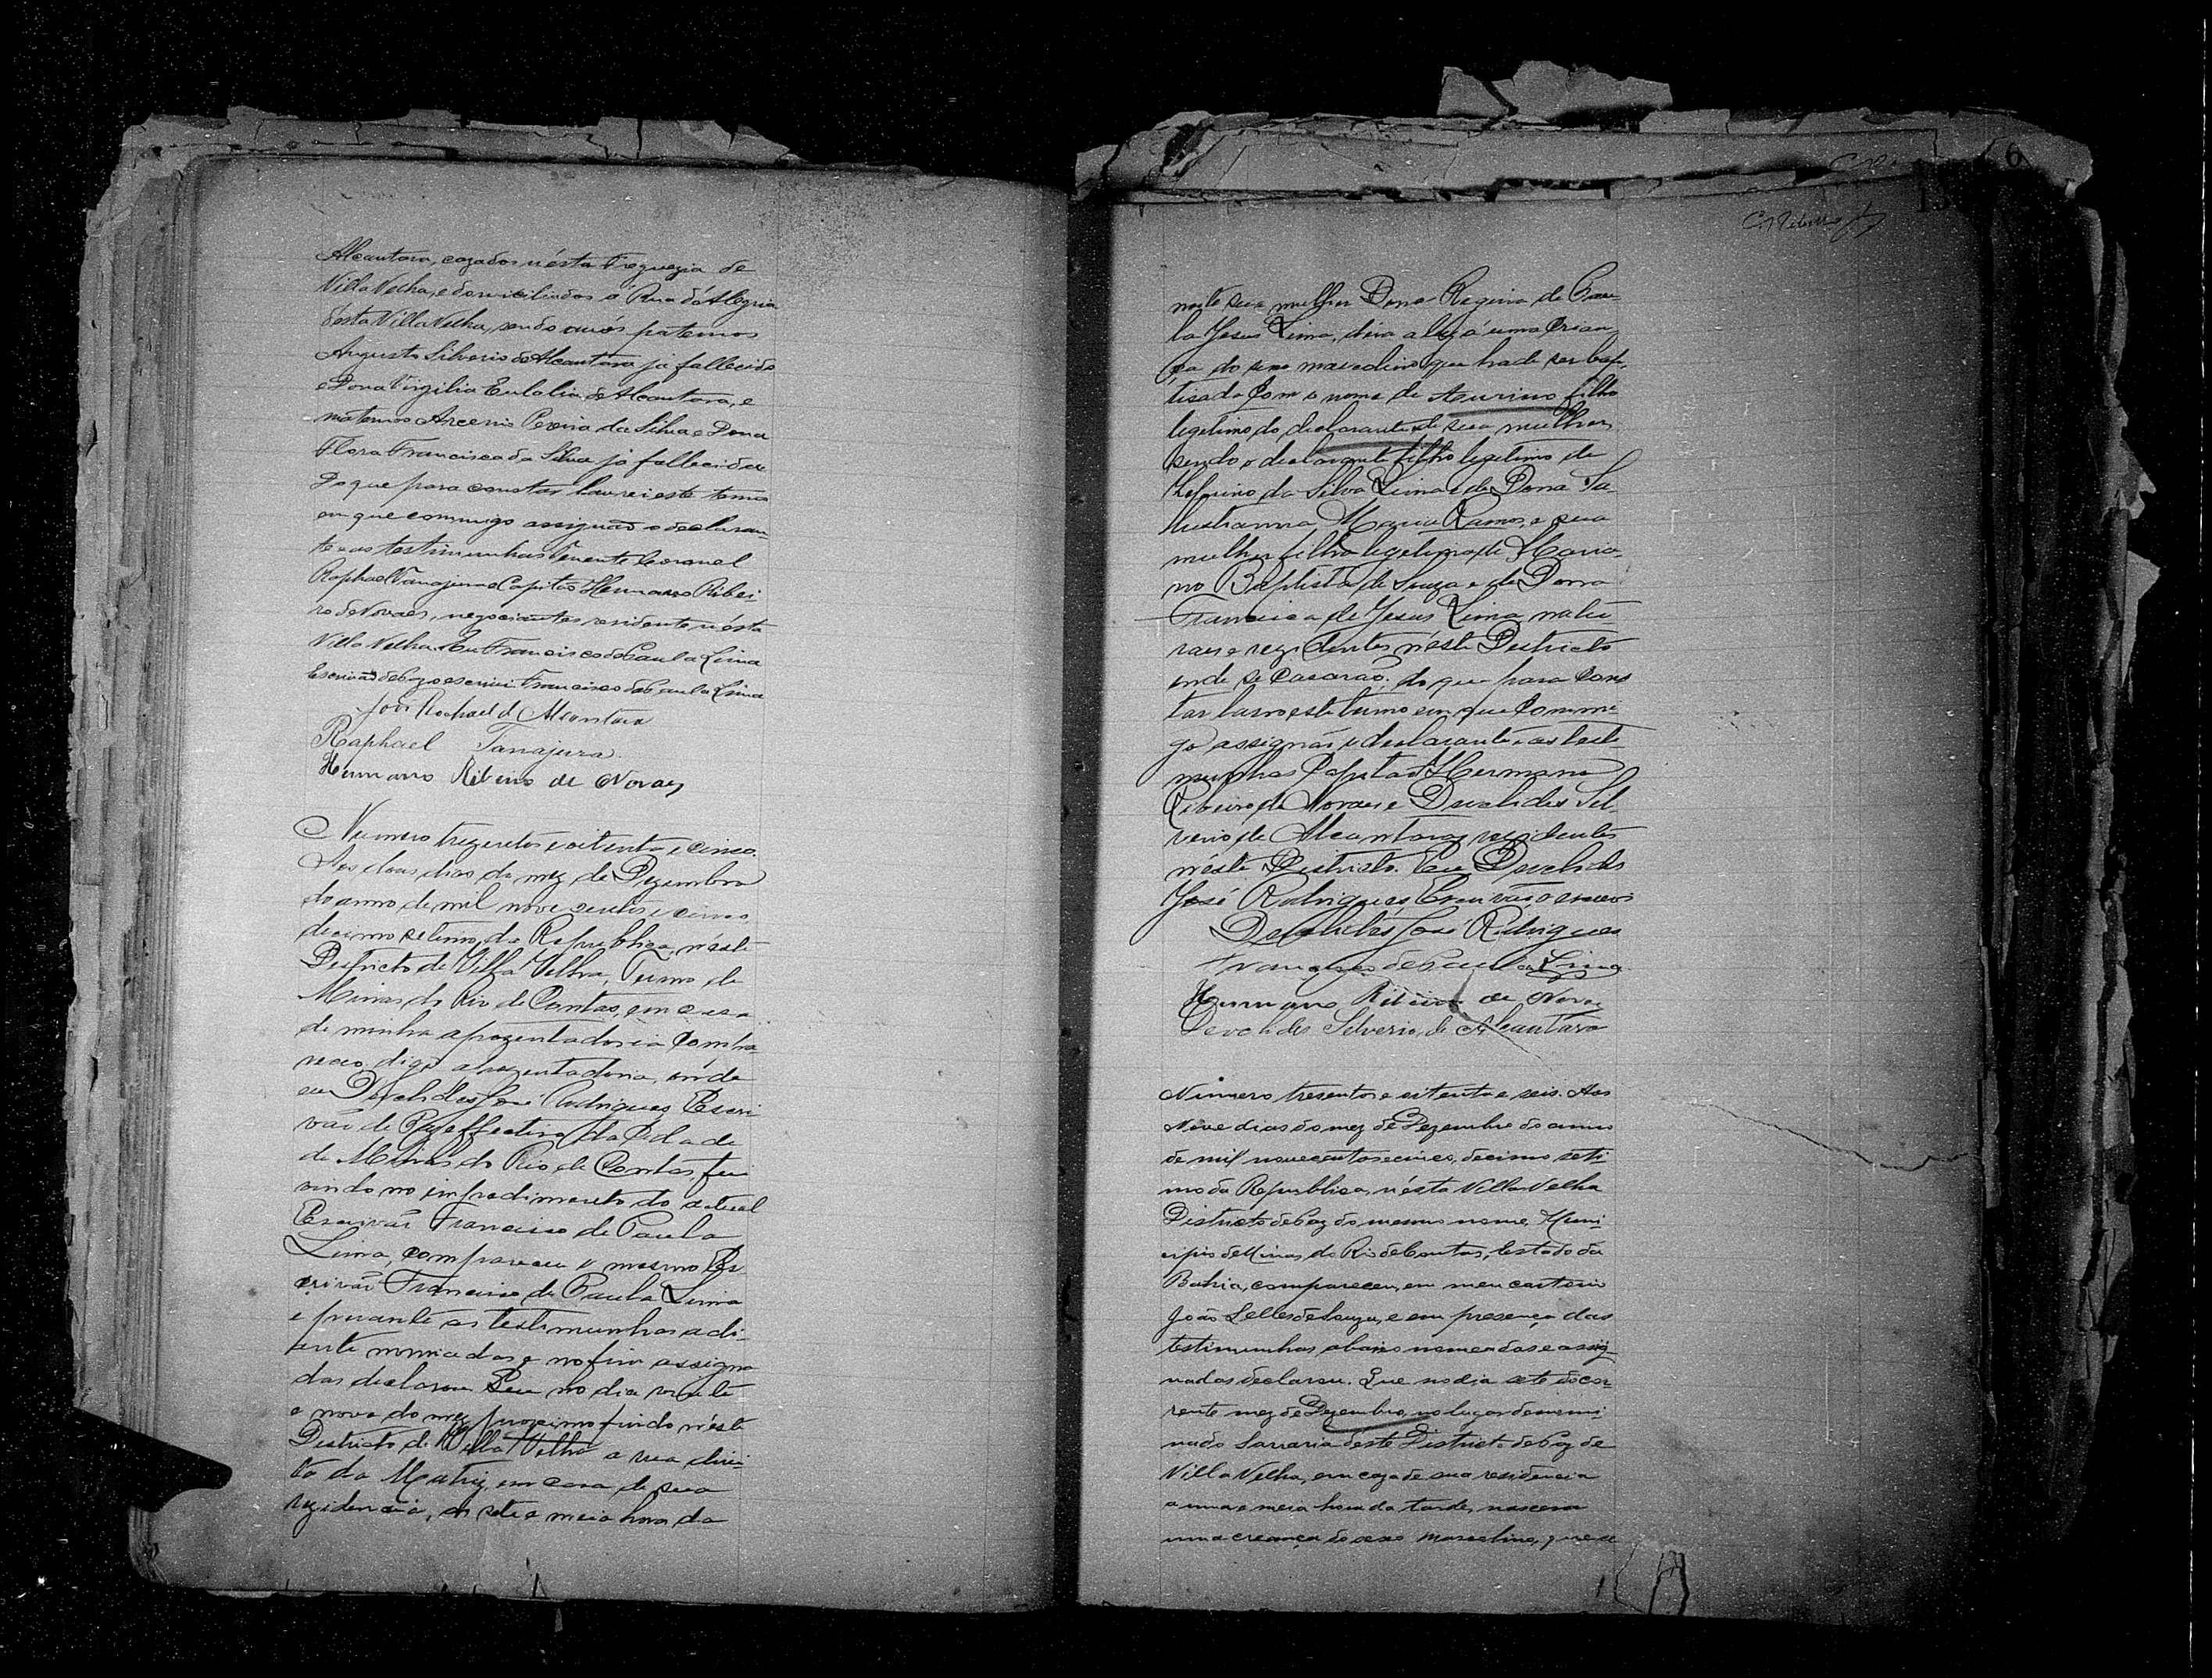 Alcantara, cazados nésta Freguezia de
Villa Velha, e domiciliados á Rua d'Alegria
désta Villa Velha, sendo avós paternos
Augusto Silverio de Alcantara já fallecido
e Dona Virgilia Eulalia de Alcantara, e
maternos Arcenio Pereira da Silva e Dona
Flora Francisca da Silva já fallecida
Do que para constar lavrei este termo
em que commigo assignaõ o declaran
te e as testimunhas Tenente Coronel
Raphael Tanajura e Capitaõ Hermano Ribei-
ro de Novaes, negociantes residente nésta
Villa Velha. Eu Francisco de Paula Lima
Escrivaõ de Paz o escrivi. Francisco de Paula Lima
João Raphael d'Alcantara
Raphael Tanajura
Hermano Ribeiro de Novaes
Numero trezentos e oitenta e cinco.
Aos dous dias do mez de Dezembro
do anno de mil nove centos e cinco
decimo setimo da Republica, néste
Districto de Villa Velha, Termo de
Minas do Rio de Contas, em casa
de minha apozentadoria compa-
receo, digo apozentadoria, onde
eu Deoclides José Rodrigues Escri
vão de Paz effectivo da Cidade
de Minas do Rio de Contas, fui
vindo no impedimento do actual
Escrivaõ Francisco de Paula
Lima, compareceu o mesmo Es
crivaõ Francisco de Paula Lima
e perante as testimunhas adi-
ante nomiadas e no fim assigna
das declarou Que no dia vinte
e nove do mez proximo findo néste
Districto de Villa Velha a rua direi-
ta da Matriz em casa de sua
rezidencia, as sete e meia hora da
6
noite sua mulher Dona Regina de Pau-
la Jesus Lima, déra a luz á uma crian
ça do sexo masculino que hade ser bap-
tisada com o nome de Aurino filho
legitimo do declarante e de sua mulher,
sendo o declarante filho legitimo de
Zeferino da Silva Lima e de Dona Sa-
lustianna Maria Ramos, e sua
mulher filha legitima de Maria-
no Baptista de Souza e de Dona
Francisca de Jesus Lima, natu-
raes e rezidentes néste Districto
onde se casaraõ, do que para cons
tar lavro este termo em que commi-
go assignaõ o declarante e as testi-
munhas Capitaõ Hermano
Ribeiro de Novaes e Deoclides Sil
verio de Alcantara, rezidentes
néste Districto. Eu Deoclides
José Rodrigues, Escrivão o escrevi
Deoclides José Rodrigues
Francisco de Paula Lima
Hermano Ribeiro de Novaes
Deoclides Silverio de Alcantara
Número tresentos e oitenta e seis. Aos
Nove dias do mez de Dezembro do anno
de mil novecentos e cinco, decimo seti-
mo da Republica, nésta Villa Velha
Districto de Paz do mesmo nome, Muni
cipio de Minas do Rio de Contas, Estado da
Bahia, compareceu, em meu cartorio
João Telles de Souza, e em presença das
testimunhas abaixo nomeadas e assig-
nadas declarou. Que no dia sete do cor-
rente mez de Dezembro, no lugar denomi
nado Sarraria deste Districto de Paz de
Villa Velha, em caza de sua residencia
a uma e meia hora da tarde, nascera
uma creança do sexo masculino, que se